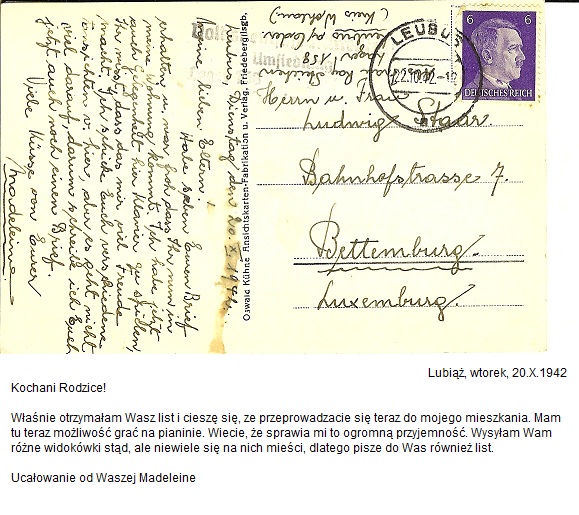 Leubus, Dienstag, den 20.X.1942.
Meine lieben Eltern!
Habe soeben Euren Brief
erhalten u. war froh, dass Ihr nun in
meine Wohnung kommt. Ich habe jetzt
auch Gelegenheit hier Klavier zu spielen,
Ihr wisst, dass das mir viel Freude
macht. Ich schicke Euch verschiedene
Ansichten v. hier, aber es geht nicht
viel darauf, darum schreibe ich Euch
jetzt auch noch einen Brief.
Viele Küsse von Eurer
Madeleine
Oswald Kühne Ansichtskarten-Fabrikation u. Verlag, Friedeberg
Lager 158
Leubus a/Oder
(Kreis Wohlau)
LEUBUS
22.10.42
6 6
DEUTSCHES REICH
Herrn u. Frau
Ludwig Staar.
Bahnhofstrasse 7.
Bettemburg.
Luxemburg.
Lubiąż, wtorek, 20.X.1942
Kochani Rodzice!
Właśnie otrzymałam Wasz list i cieszę się, ze przeprowadzacie się teraz do mojego mieszkania. Mam
tu teraz możliwość grać na pianinie. Wiecie, że sprawia mi to ogromną przyjemność. Wysyłam Wam
różne widokówki stąd, ale niewiele się na nich mieści, dlatego pisze do Was również list.
Ucałowanie od Waszej Madeleine